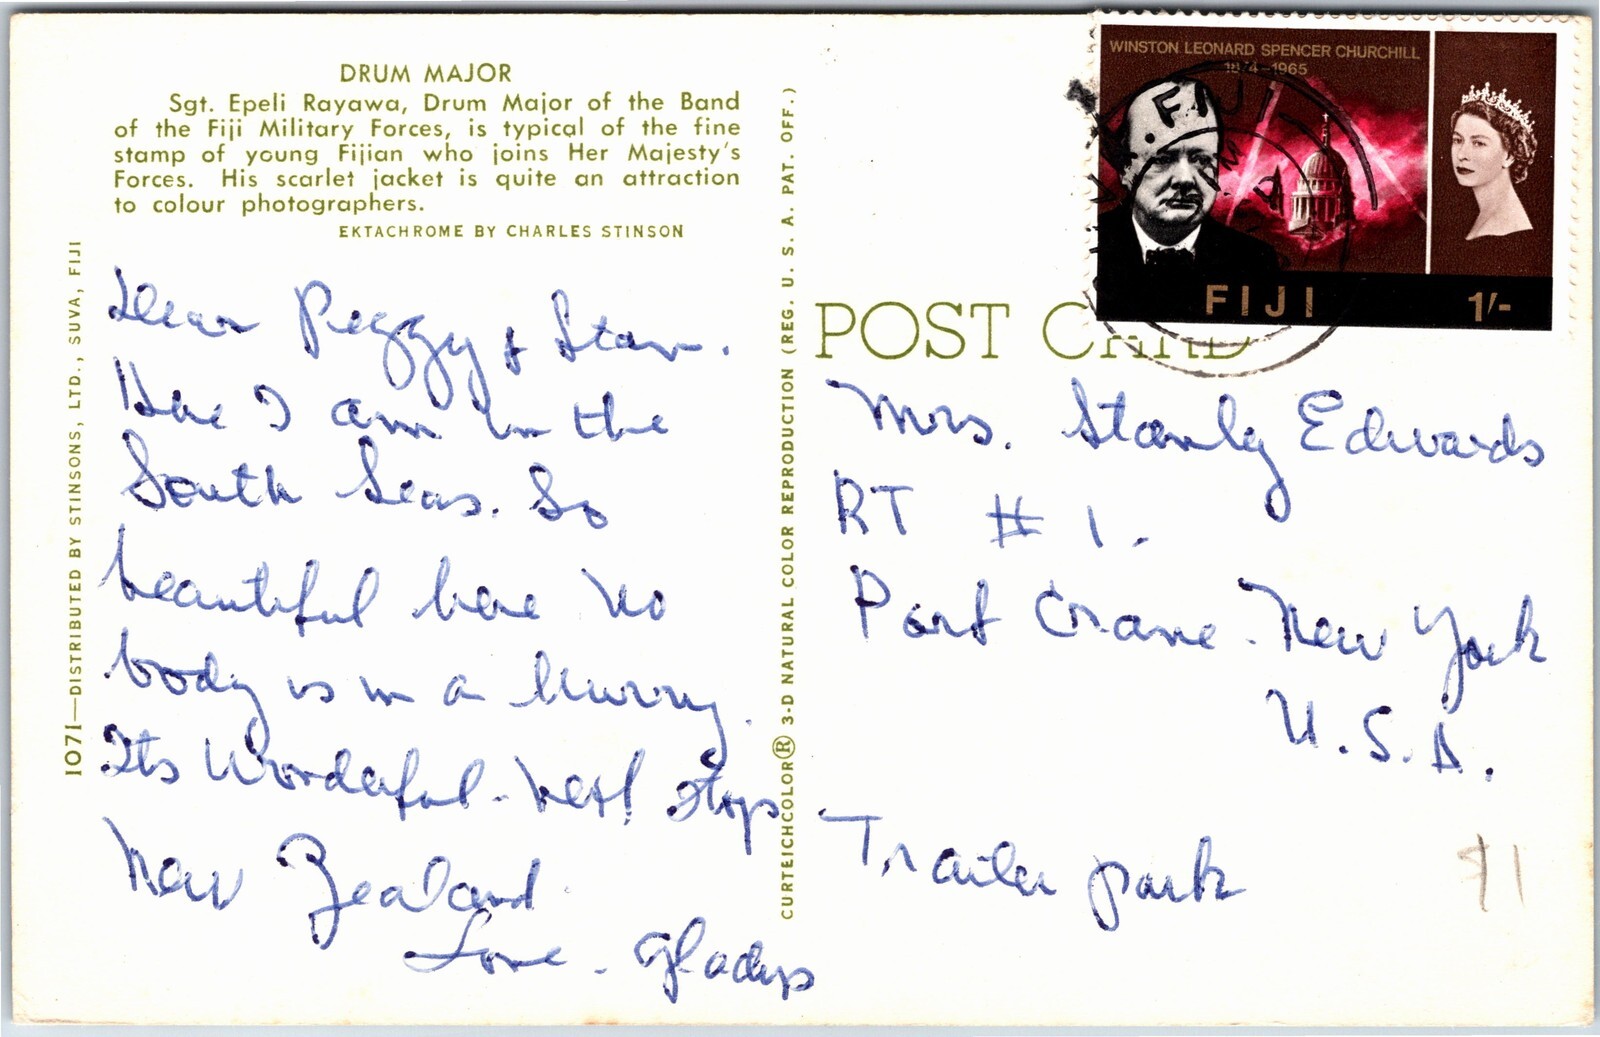 DRUM MAJOR
Sgt. Epeli Rayawa, Drum Major of the Band
of the Fiji Military Forces, is typical of the fine
stamp of young Fijian who joins Her Majesty's
Forces. His scarlet jacket is quite an attraction
to colour photographers.
EKTACHROME BY CHARLES STINSON
1071—DISTRIBUTED BY STINSONS, LTD., SUVA, FIJI
Dear Peggy & Stan.
Here I am in the
South Seas. So
beautiful here No
body is in a hurry.
Its Wonderful. Next stop
New Zealand
Love. Gladys
CURTEICHCOLOR® 3-D NATURAL COLOR REPRODUCTION (REG. U. S. A. PAT. OFF.)
WINSTON LEONARD SPENCER CHURCHILL
1874-1965
FIJI
FIJI 1/-
POST CARD
Mrs. Stanly Edwards
RT # 1.
Port Crane. New York
U.S.A.
Trailer park
$1